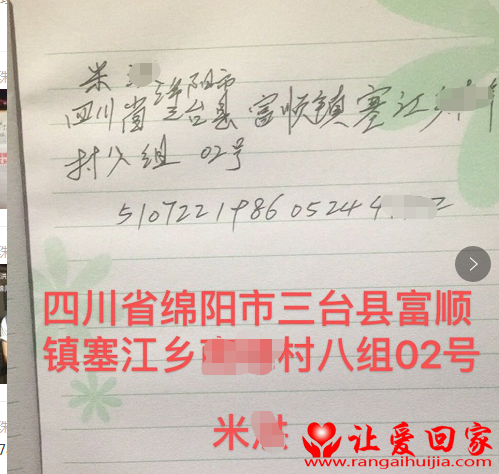 米
绵阳市
四川省三台县富顺镇塞江
村八组 02号
510722198605244
四川省绵阳市三台县富顺
镇塞江乡村八组02号
米
让爱回家
www.rangaihuijia.com